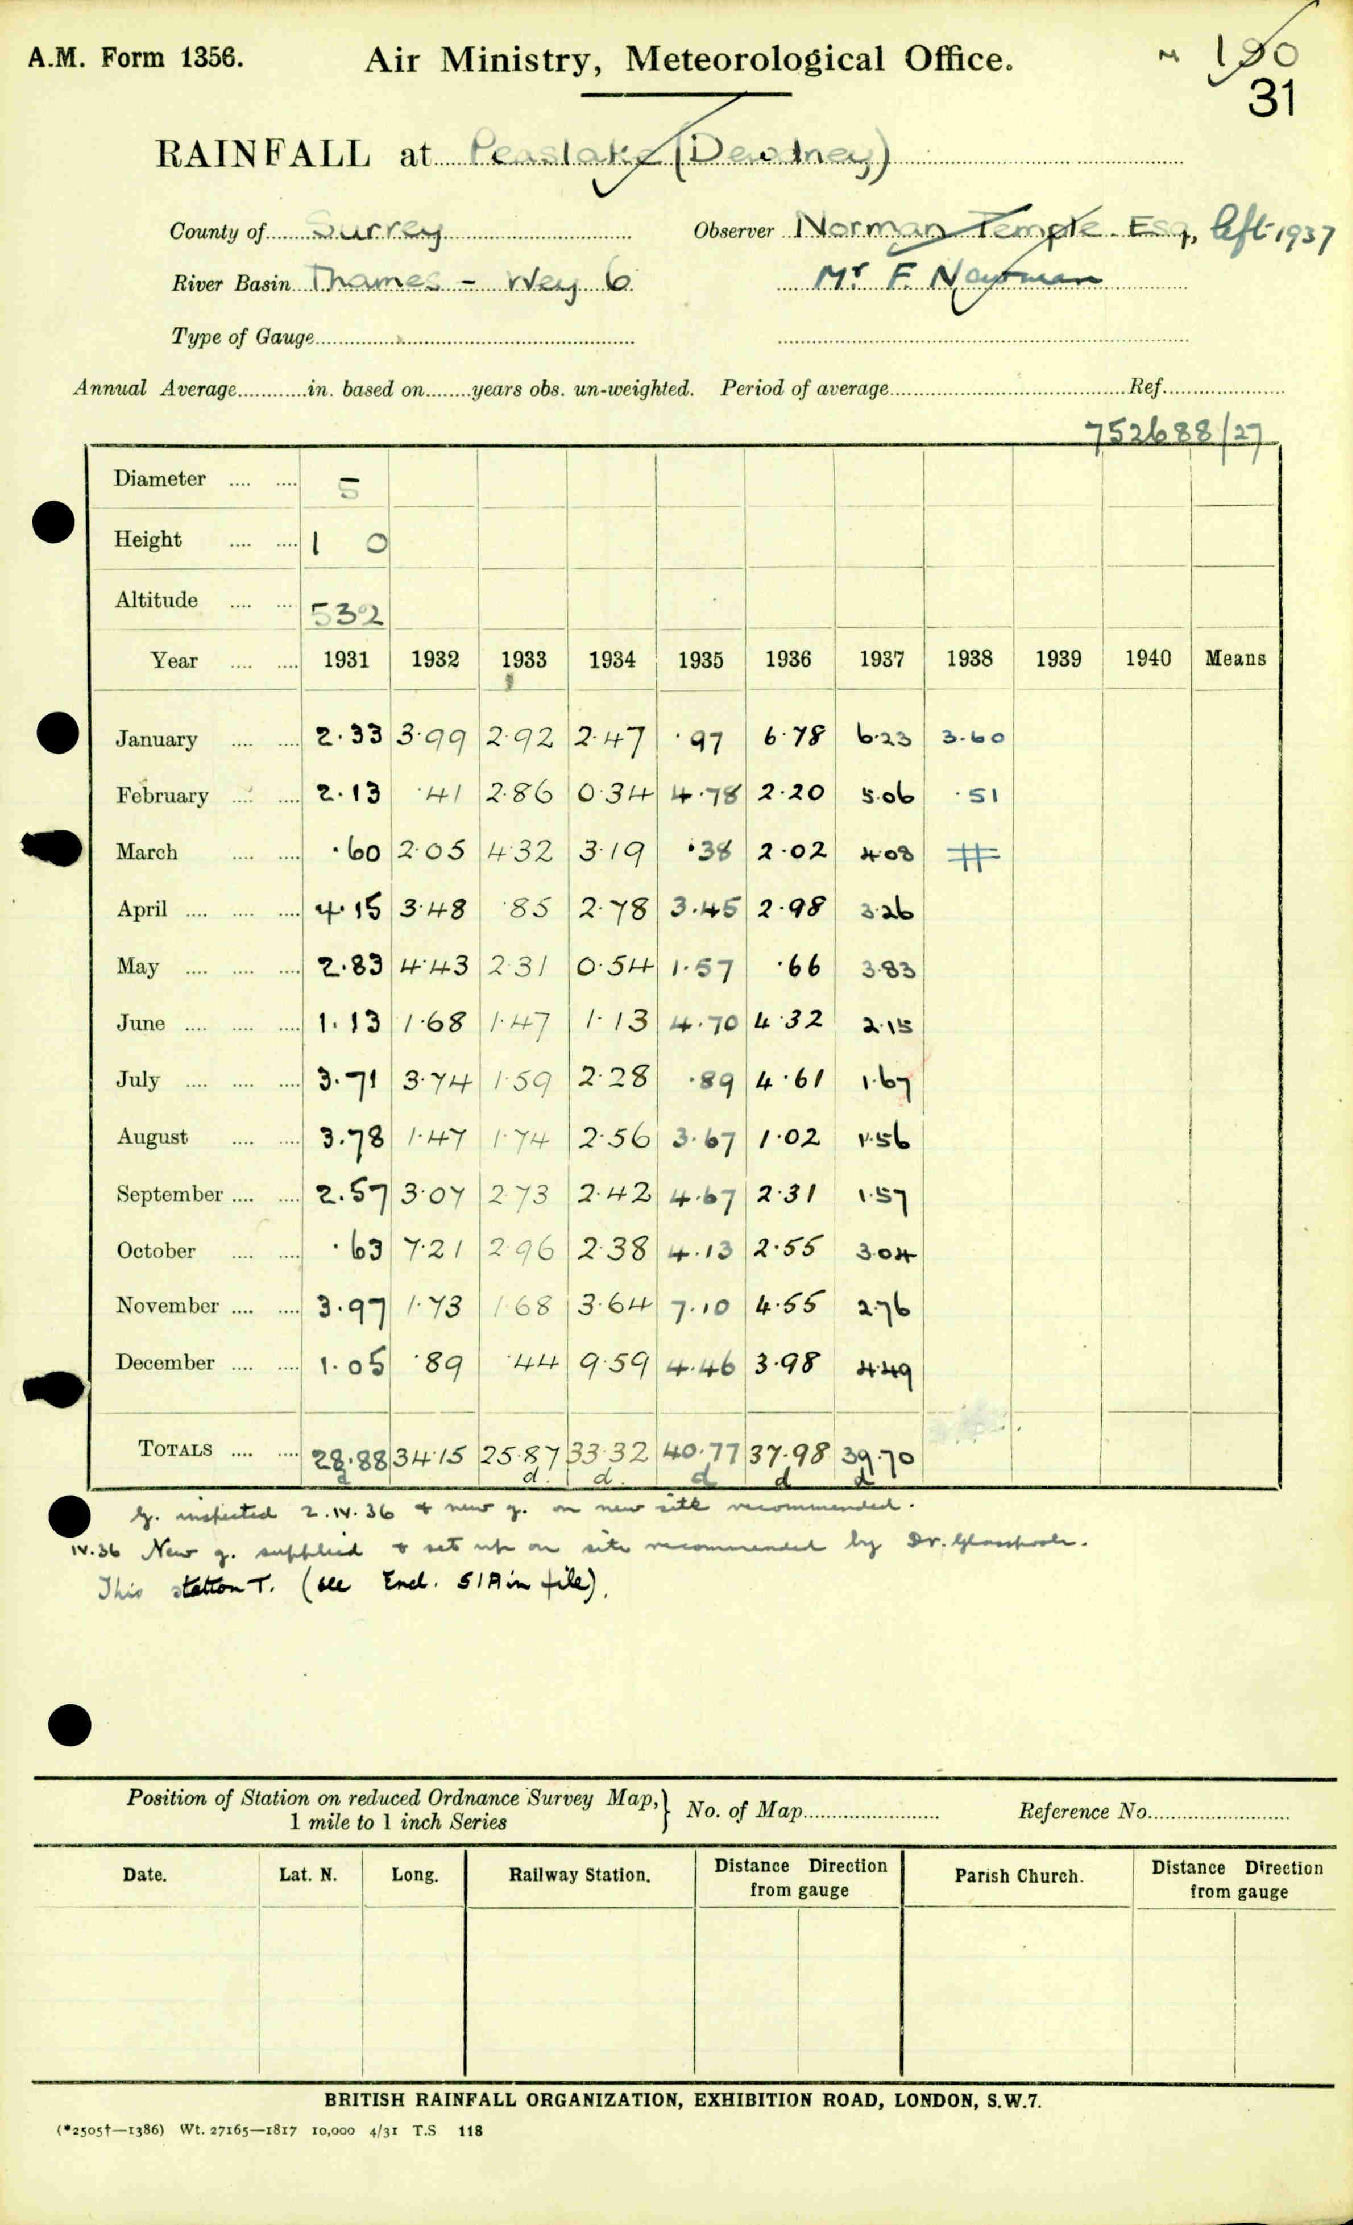 A.M. Form 1356. Air Ministry, Meteorological Office. 190
31
RAINFALL at Peaslake (Dewdney)
County of Surrey Observer Norman Temple Esq, left 1937
River Basin Thames - Wey 6 Mr F. Newman
Type of Gauge
Annual Average in. based on years obs. un-weighted. Period of average Ref.
752688/27
Diameter 5
Height 1 0
Altitude 532
Year 1931 1932 1933 1934 1935 1936 1937 1938 1939 1940 Means
January 2.33 3.99 2.92 2.47 .97 6.78 6.23 3.60
February 2.13 .41 2.86 0.34 4.78 2.20 5.06 .51
March .60 2.05 4.32 3.19 .38 2.02 4.08
April 4.15 3.48 .85 2.78 3.45 2.98 3.26
May 2.83 4.43 2.31 0.54 1.57 .66 3.83
June 1.13 1.68 1.47 1.13 4.70 4.32 2.15
July 3.71 3.74 1.59 2.28 .89 4.61 1.67
August 3.78 1.47 1.74 2.56 3.67 1.02 1.56
September 2.57 3.07 2.73 2.42 4.67 2.31 1.57
October .63 7.21 2.96 2.38 4.13 2.55 3.04
November 3.97 1.73 1.68 3.64 7.10 4.55 2.76
December 1.05 .89 .44 9.59 4.46 3.98 4.49
TOTALS 28.88 34.15 25.87 33.32 40.77 37.98 39.70
d d. d. d d d
G. inspected 2.IV.36 & new g. on new site recommended.
IV.36 New g. supplied & set up on site recommended by Dr. Glasspoole.
This station T. (see Encl. 51A in file).
Position of Station on reduced Ordnance Survey Map, } No. of Map Reference No.
1 mile to 1 inch Series
Date. Lat. N. Long. Railway Station. Distance Direction from gauge Parish Church. Distance Direction from gauge
BRITISH RAINFALL ORGANIZATION, EXHIBITION ROAD, LONDON, S.W.7.
(*2505†—1386) Wt. 27165—1817 10,000 4/31 T.S 118